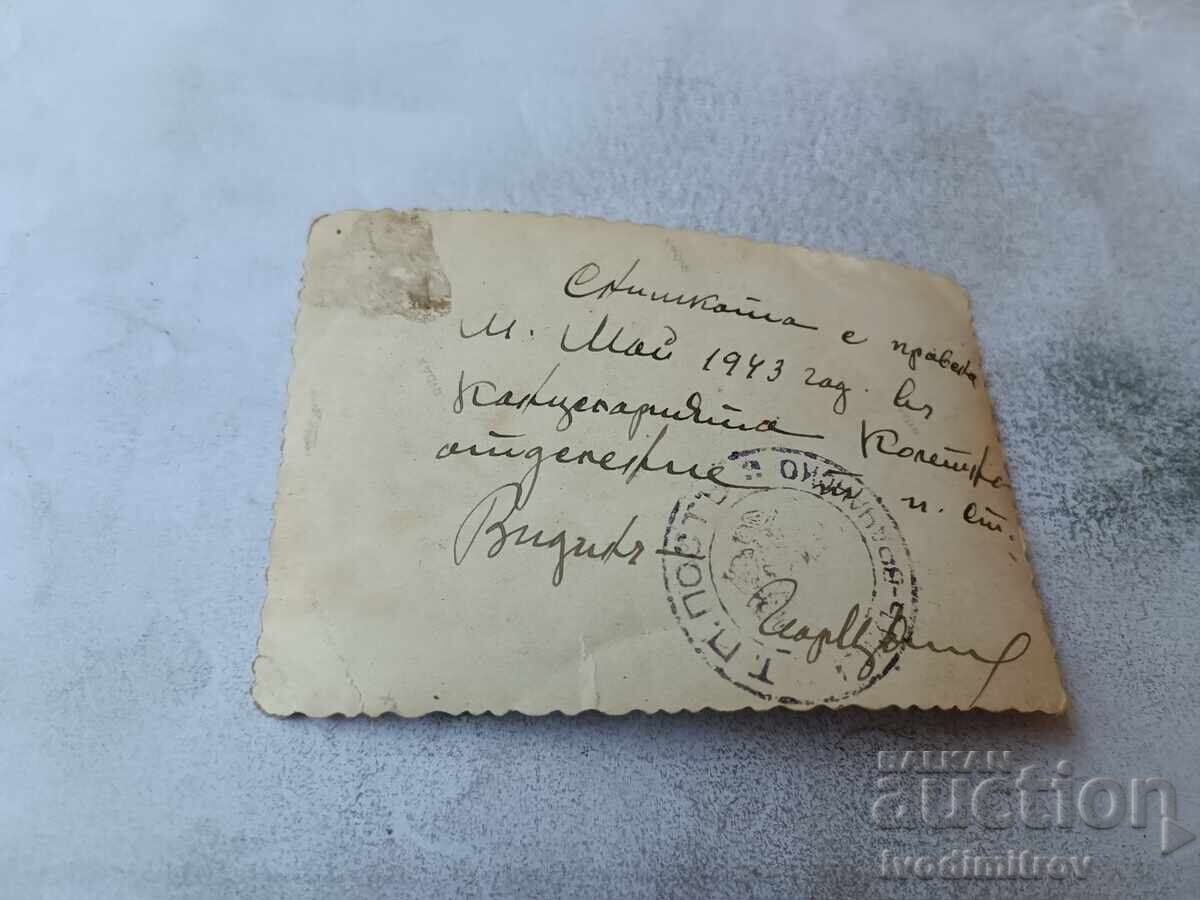 Снимката е правена
М. Май 1943 год. въ
Канцеларията
отделение п. ст.
Видинъ
Т. П. ПОРТ
BALKAN
auction
ivodimitrov